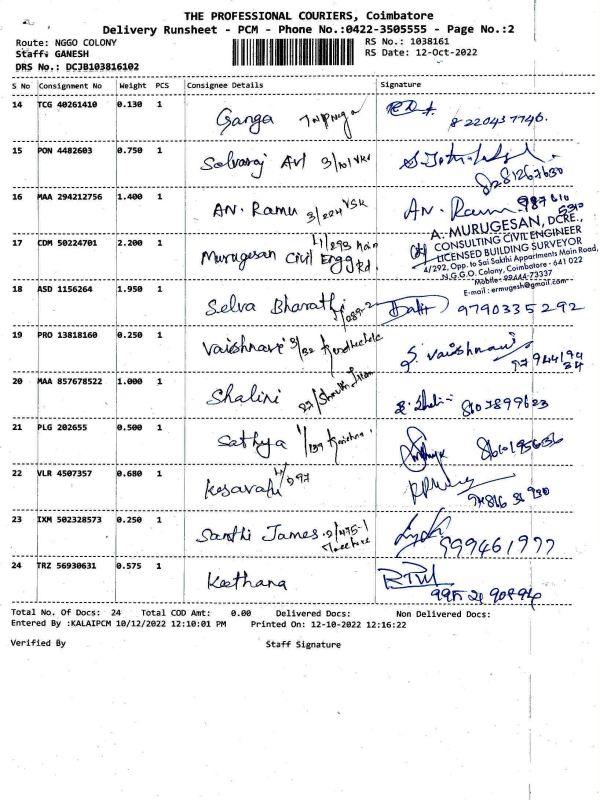 THE PROFESSIONAL COURIERS, Coimbatore
Delivery Runsheet - PCM - Phone No.:0422-3505555 - Page No.:2
Route: NGGO COLONY
RS No.: 1038161
Staff: GANESH
RS Date: 12-Oct-2022
DRS No.: DCJB103816102
S No Consignment No Weight PCS Consignee Details Signature
14 TCG 40261410 0.130 1 Ganga
8220437746.
15 PON 4482603 0.750 1 Selvaraj
8281267630
16 MAA 294212756 1.400 1 AN. Ramu 3/224 VSK AN. Ramu
17 CDM 50224701 2.200 1 Murugesan Civil Engg 4/293 main Rd.
A. MURUGESAN, DCRE.,
CONSULTING CIVIL ENGINEER
LICENSED BUILDING SURVEYOR
4/292, Opp. to Sai Sakthi Appartments Main Road,
N.G.G.O. Colony, Coimbatore - 641 022
Mobile: 99444-73337
E-mail : ermugesh@gmail.com
18 ASD 1156264 1.950 1 Selva Bharathi
9790335292
19 PRO 13818160 0.250 1 Vaishnavi S. Vaishnavi
20 MAA 857678522 1.000 1 Shalini
8107899623
21 PLG 202655 0.500 1 Sathya
22 VLR 4507357 0.680 1 Kesavalu
23 IXM 502328573 0.250 1 Santhi James
999461977
24 TRZ 56930631 0.575 1 Keethana
Total No. Of Docs: 24 Total COD Amt: 0.00 Delivered Docs: Non Delivered Docs:
Entered By :KALAIPCM 10/12/2022 12:10:01 PM Printed On: 12-10-2022 12:16:22
Verified By Staff Signature